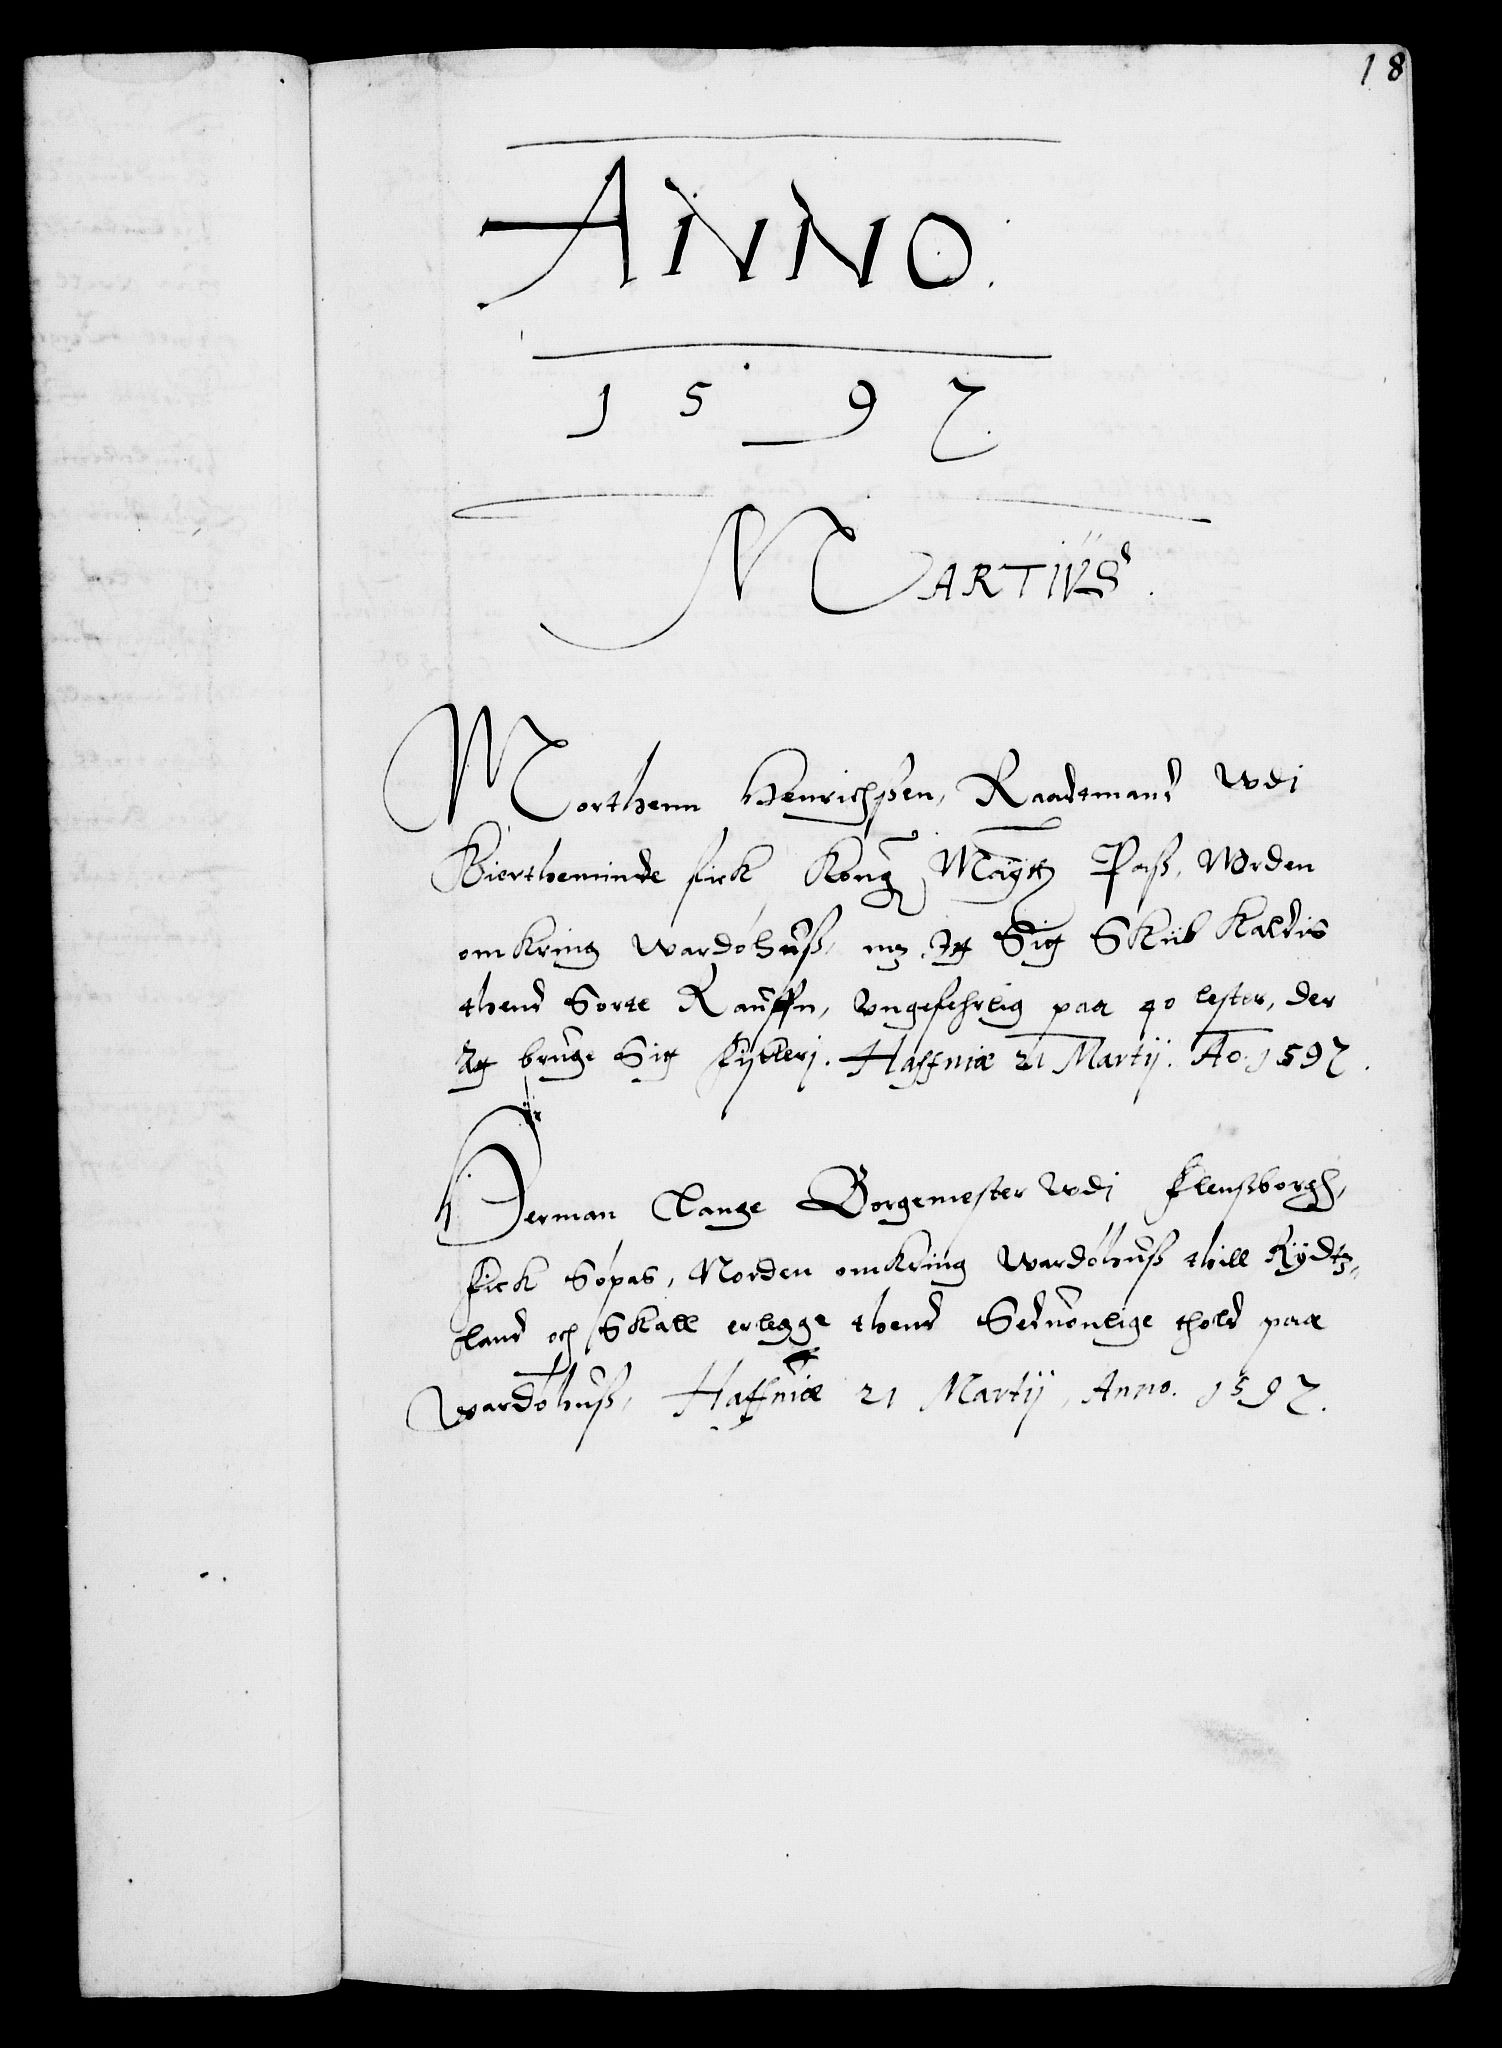 18
ANNO.
1597.
MARTIUS.
Morthenn Henrichsen, Raadtmand wdi
Kiertheminde fick Kong Maytt Paß, Norden
omkring wardöhuß, mz It Sit Skib kaldis
thend Sorte Rauffn, Vngefehrlig paa 40 lester, der
At bruge Sit fiskeri. Haffniæ 21 Martij. Ao. 1597.
Herman Lange Borgemester wdi Flensborgh,
fick Söpas, Norden omkring Wardöhuß thill Rydtz-
land och Skall erlegge thend Seduonlige thold paa
wardöhuß, Haffniæ 21 Martij, Anno. 1597.